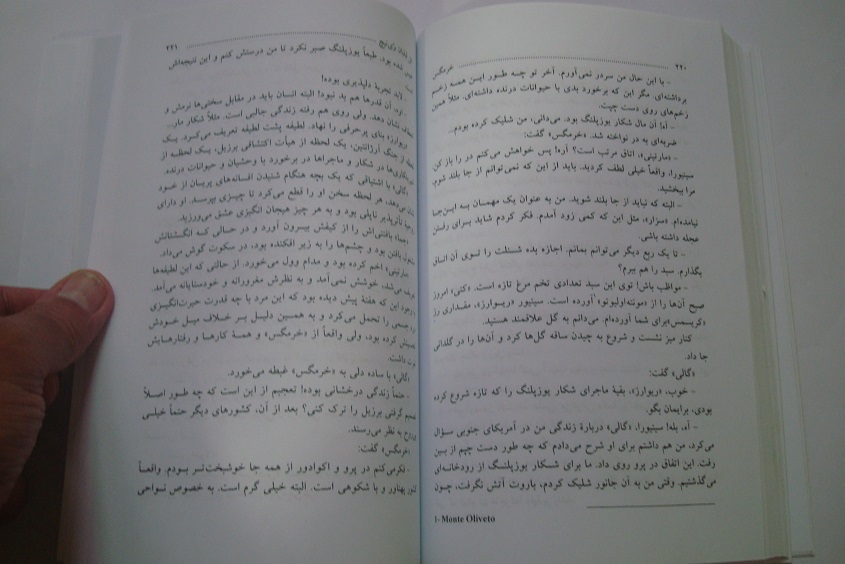 ۲۲۰ خرمگس
- با این حال من سردر نمی‌آورم. آخر تو چه طور این همه زخم
برداشته‌ای. مگر این که برخورد بدی با حیوانات درنده داشته‌ای. مثلاً همین
زخم‌های روی دست چپت.
- آه! آن مال شکار یوزپلنگ بود. می‌دانی، من شلیک کرده بودم...
ضربه‌ای به در نواخته شد. «خرمگس» گفت:
- «مارتینی»، اتاق مرتب است؟ آره! پس خواهش می‌کنم در را باز کن
سینیورا، واقعاً خیلی لطف کردید. باید از این که نمی‌توانم از جا بلند شوم،
مرا ببخشید.
- البته که نباید از جا بلند شوید. من به عنوان یک مهمان به این‌جا
نیامده‌ام. «سزار»، مثل این که کمی زود آمدم. فکر کردم شاید برای رفتن
عجله داشته باشی.
- تا یک ربع دیگر می‌توانم بمانم. اجازه بده شنلت را توی آن اتاق
بگذارم. سبد را هم ببرم؟
- مواظب باش! توی این سبد تعدادی تخم مرغ تازه است. «کتی» امروز
صبح آن‌ها را از «مونته‌اولیوتو»۱ آورده است. سینیور «ریوارز»، مقداری رز
«کریسمس» برای شما آورده‌ام. می‌دانم به گل علاقمند هستید.
کنار میز نشست و شروع به چیدن ساقه گل‌ها کرد و آن‌ها را در گلدانی
جا داد.
«گالی» گفت:
- خوب، «ریوارز»، بقیهٔ ماجرای شکار یوزپلنگ را که تازه شروع کرده
بودی، برایمان بگو.
- آه، بله! سینیورا، «گالی» دربارهٔ زندگی من در آمریکای جنوبی سؤال
می‌کرد. من هم داشتم برای او شرح می‌دادم که چه طور دست چپم از بین
رفت. این اتفاق در پرو روی داد. ما برای شکار یوزپلنگ از رودخانه‌ای
می‌گذشتیم. وقتی من به آن جانور شلیک کردم، باروت آتش نگرفت، چون
1- Monte Oliveto
۲۲۱
شده بود. طبعاً یوزپلنگ صبر نکرد تا من درستش کنم و این نتیجه‌اش
- لابد تجربهٔ دلپذیری بوده!
- اوه، آن قدرها هم بد نبود! البته انسان باید در مقابل سختی‌ها نرمش و
نشان دهد. ولی روی هم رفته زندگی جالبی است. مثلاً شکار مار...
بنای پرحرفی را نهاد. لطیفه پشت لطیفه تعریف می‌کرد. یک
از جنگ آرژانتین، یک لحظه از هیأت اکتشافی برزیل، یک لحظه از
در شکار و ماجراها در برخورد با وحشیان و حیوانات درنده.
«گالی» با اشتیاقی که یک بچه هنگام شنیدن افسانه‌های پریان از خود
می‌دهد، هر لحظه سخن او را قطع می‌کرد تا چیزی بپرسد. او دارای
تأثرپذیر ناپلی بود و به هر چیز هیجان انگیزی عشق می‌ورزید.
بافتنی‌اش را از کیفش بیرون آورد و در حالی که انگشتانش
بافتن بود و چشم‌ها را به زیر افکنده بود، در سکوت گوش می‌داد.
«مارتینی» اخم کرده بود و مدام وول می‌خورد. از حالتی که این لطیفه‌ها
می‌شد، خوشش نمی‌آمد و به نظرش مغرورانه و خودستایانه می‌آمد.
این که هفتهٔ پیش دیده بود که این مرد با چه قدرت حیرت‌انگیزی
را تحمل می‌کرد و به همین دلیل بر خلاف میل خودش
کرده بود، ولی واقعاً از «خرمگس» و همهٔ کارها و رفتارهایش
داشت.
«گالی» با ساده دلی به «خرمگس» غبطه می‌خورد.
- حتماً زندگی درخشانی بوده! تعجبم از این است که چه طور اصلاً
گرفتی برزیل را ترک کنی؟ بعد از آن، کشورهای دیگر حتماً خیلی
به نظر می‌رسند.
«خرمگس» گفت:
- فکر می‌کنم در پرو و اکوادور از همه جا خوشبخت‌تر بودم. واقعاً
پهناور و با شکوهی است. البته خیلی گرم است. به خصوص نواحی